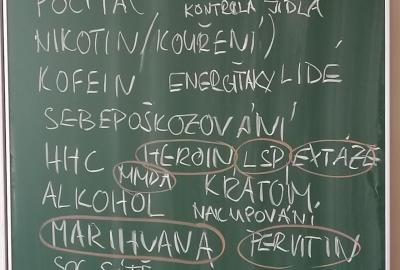 POČÍTAČ KONTROLA JÍDLA
NIKOTIN/KOUŘENÍ)
KOFEIN ENERGIŤÁKY LIDÉ
SEBEPOŠKOZOVÁNÍ
HHC HEROIN LSD EXTÁZE
MMDA
ALKOHOL KRATOM
NAKUPOVÁNÍ
MARIHUANA PERVITIN
SOC SÍTĚ